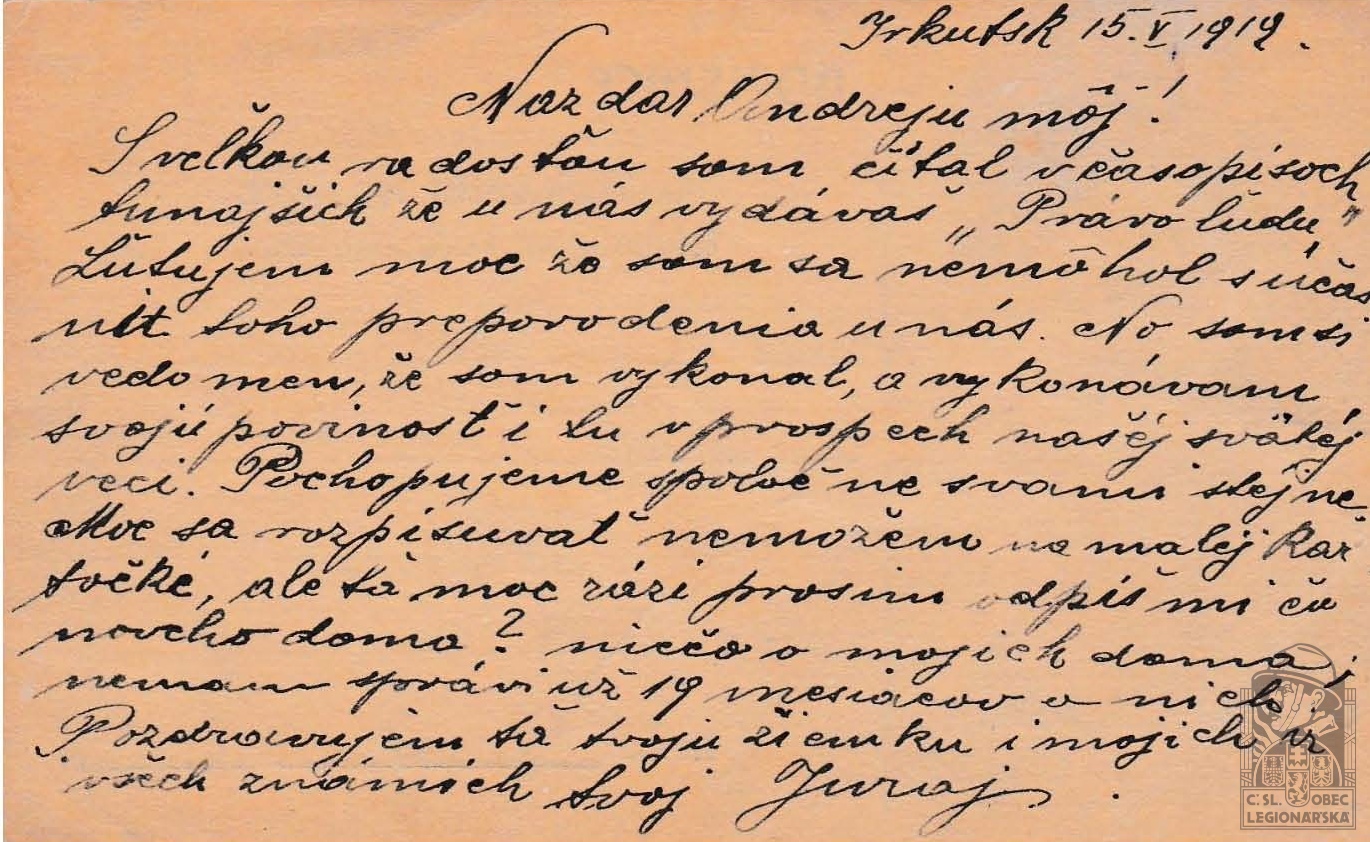 Irkutsk 15.V. 1919.
Nazdar Ondreju môj!
S velkou radosťou som čítal v časopisoch
tunajšich že u nás vydávaš „Právo ludu"
Lutujem moc že som sa nemôhol súčas
nit toho preporodenia u nás. No som si
vedomen, že som vykonal, a vykonávam
svojú povinosť i tu v prospech našéj svätéj
veci. Pochopujeme spoločne s vami stejne.
Moc sa rozpisuvať nemožem na maléj kar
točké, ale ťa moc prosim odpiš mi čo
noveho doma? niečo o mojich doma,
nemam správi už 19 mesiacov o nich.
Pozdravujem ťa tvoju žienku i mojich
všech známich tvoj Juraj.
Č. SL. OBEC
LEGIONÁŘSKÁ